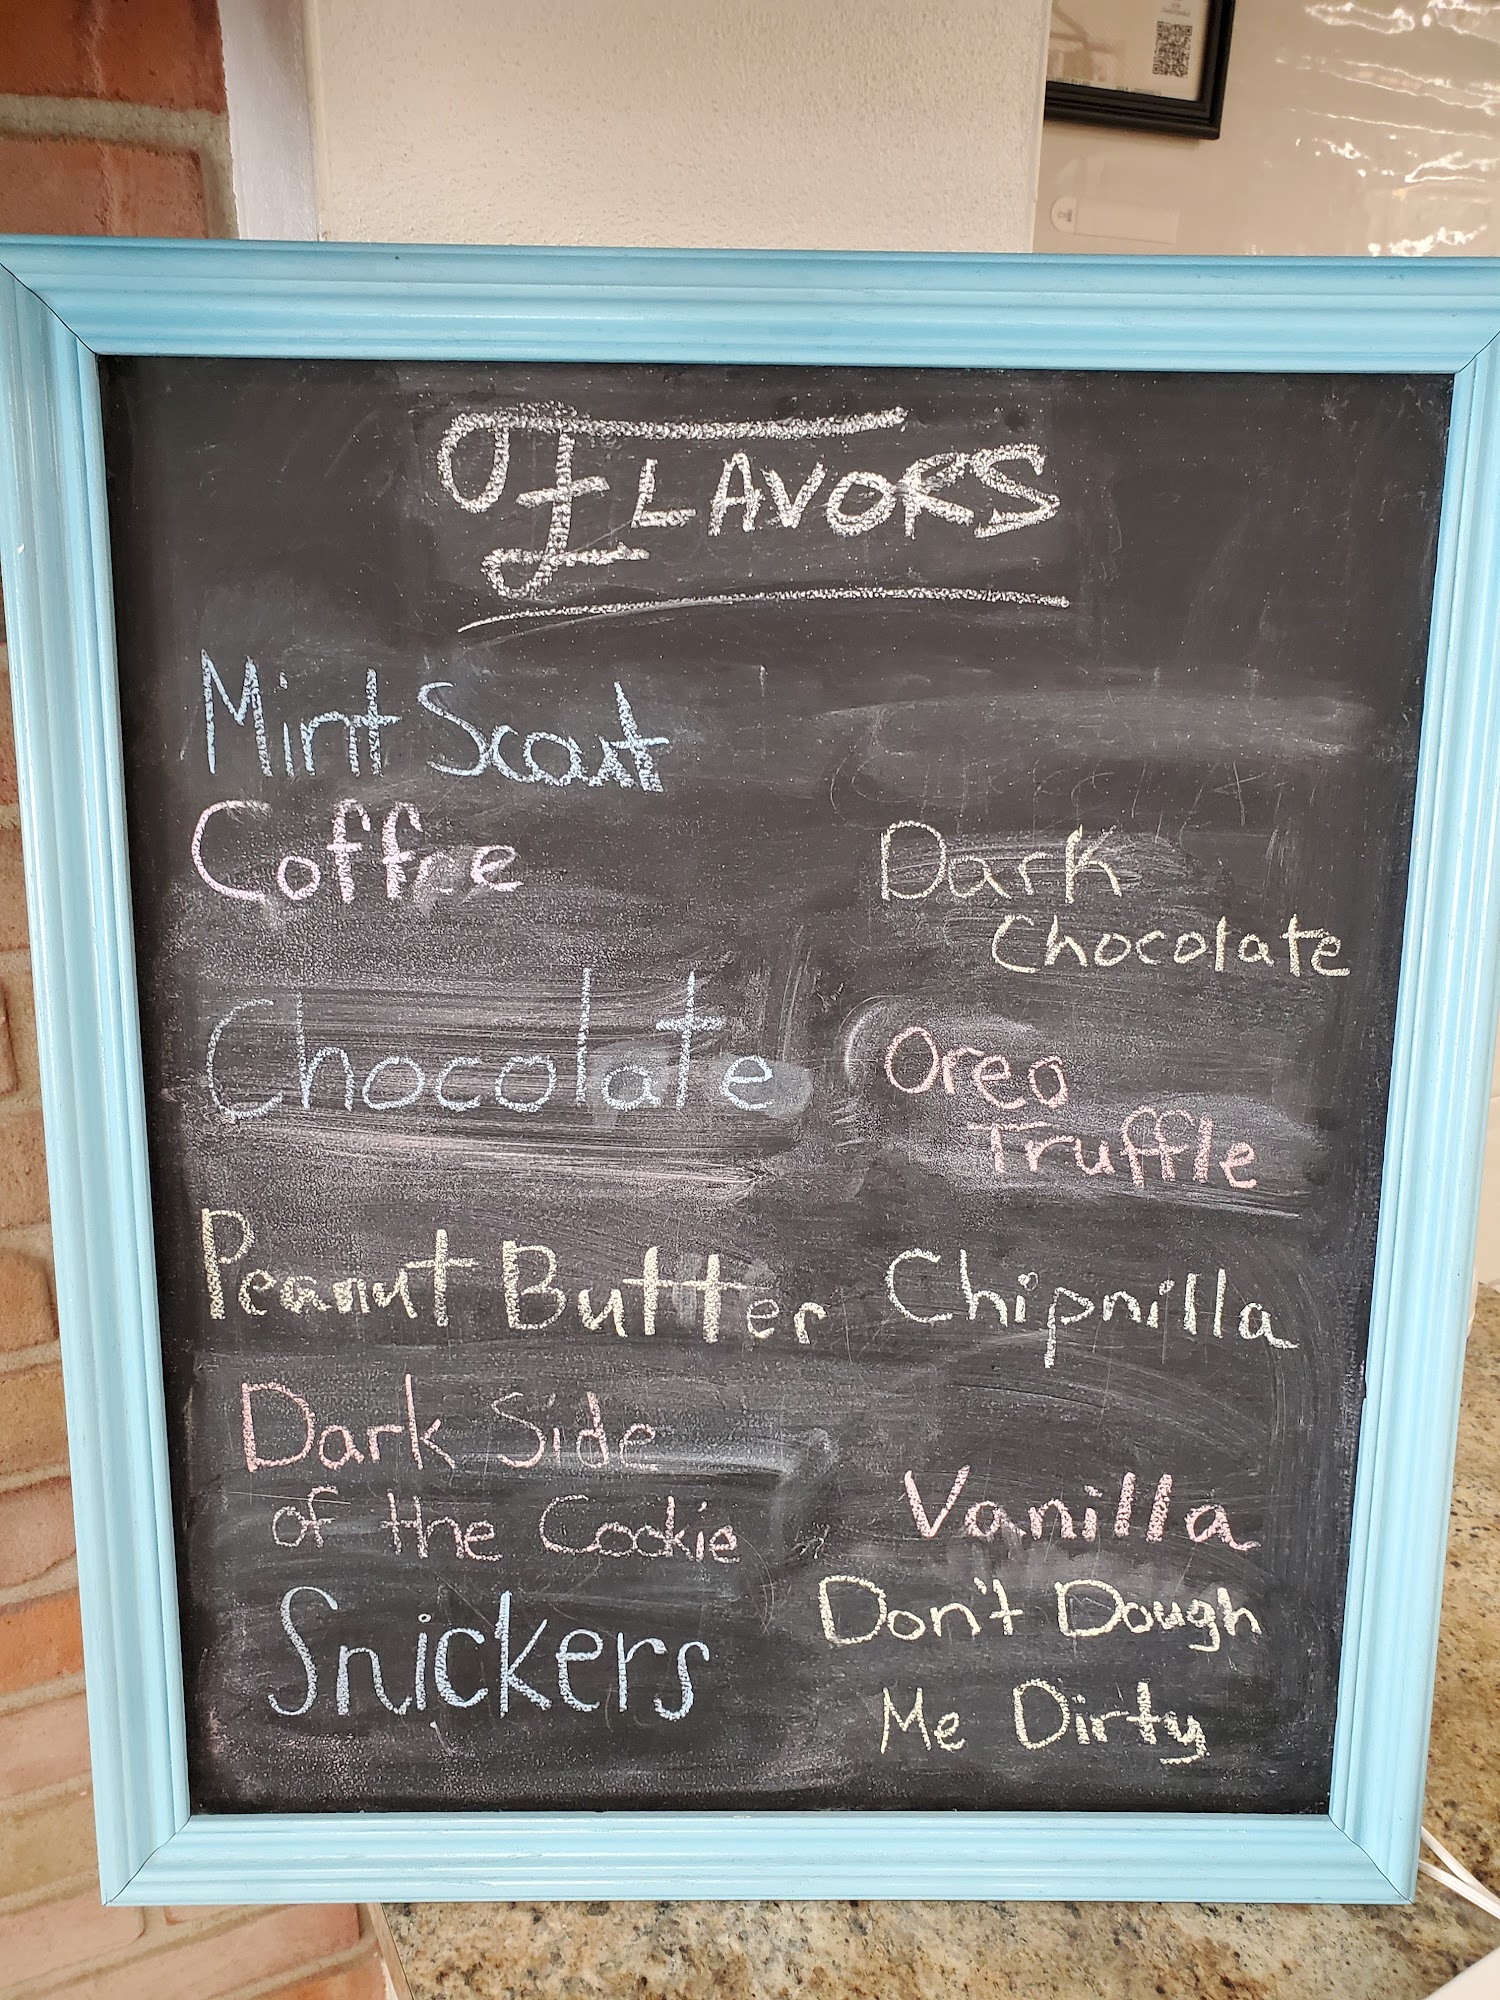 FLAVORS
Mint Scout
Coffee
Chocolate
Peanut Butter
Dark Side
of the Cookie
Snickers
Dark
Chocolate
Oreo
Truffle
Chipnilla
Vanilla
Don't Dough
Me Dirty